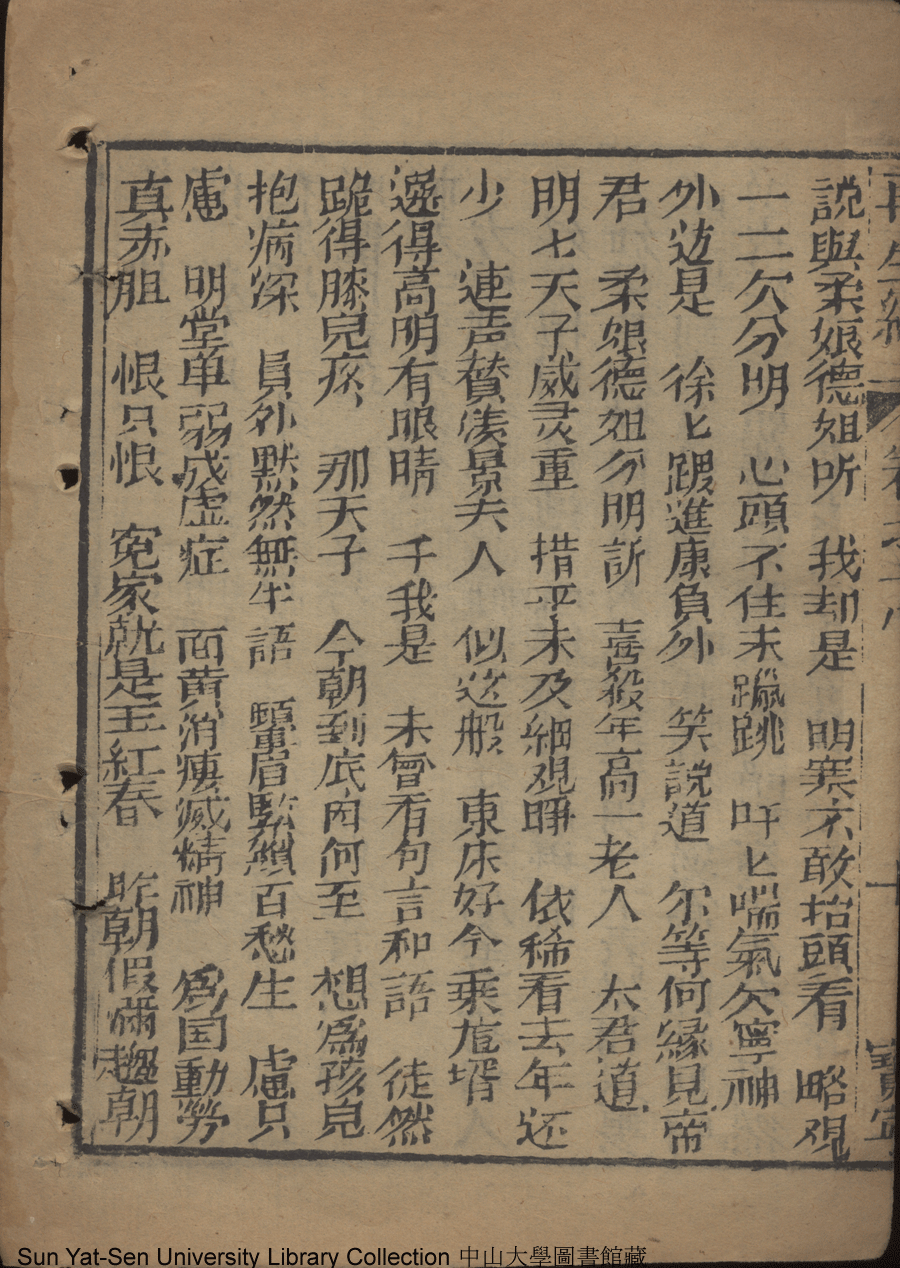 說與柔娘德姐听　我却是　明寒不敢抬頭看　略覌
一二欠分明　心頭不住未躐跳　吁匕喘氣欠寧神
外边是　徐匕踱進康負外　笑說道　尔等何緣見帝
君　柔娘德姐分明訴　喜殺年高一老人　太君道
明七天子威灵重　措平未及細覌睜　依稀看去年还
少　連声賛羡景夫人　似这般　東床好今乘尨壻
選得高明有眼睛　千我是　未曾有句言和語　徒然
跪得膝兒疼　那天子　今朝到底因何至　想為孩兒
抱病深　員外默然無半語　顰眉緊鎖百愁生　慮只
慮　明堂单弱成虚症　面黄消瘦减精神　為国動勞
真赤胆　恨只恨　寃家就是王紅春　昨朝假𤕤趨朝
再生緣
寳寧
Sun Yat-Sen University Library Collection 中山大學圖書館藏